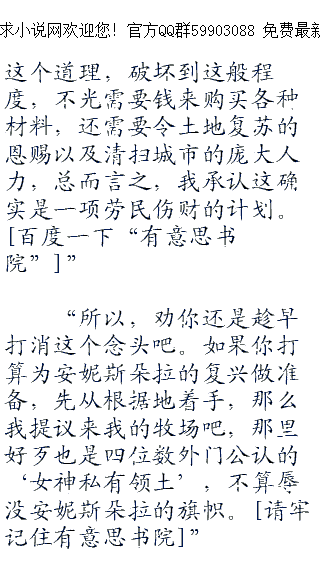 求小说网欢迎您! 官方QQ群59903088 免费最新
这个道理，破坏到这般程
度，不光需要钱来购买各种
材料，还需要令土地复苏的
恩赐以及清扫城市的庞大人
力，总而言之，我承认这确
实是一项劳民伤财的计划。
[百度一下“有意思书
院”]”
“所以，劝你还是趁早
打消这个念头吧。如果你打
算为安妮斯朵拉的复兴做准
备，先从根据地着手，那么
我提议来我的牧场吧，那里
好歹也是四位数外门公认的
‘女神私有领土’，不算辱
没安妮斯朵拉的旗帜。[请牢
记住有意思书院]”